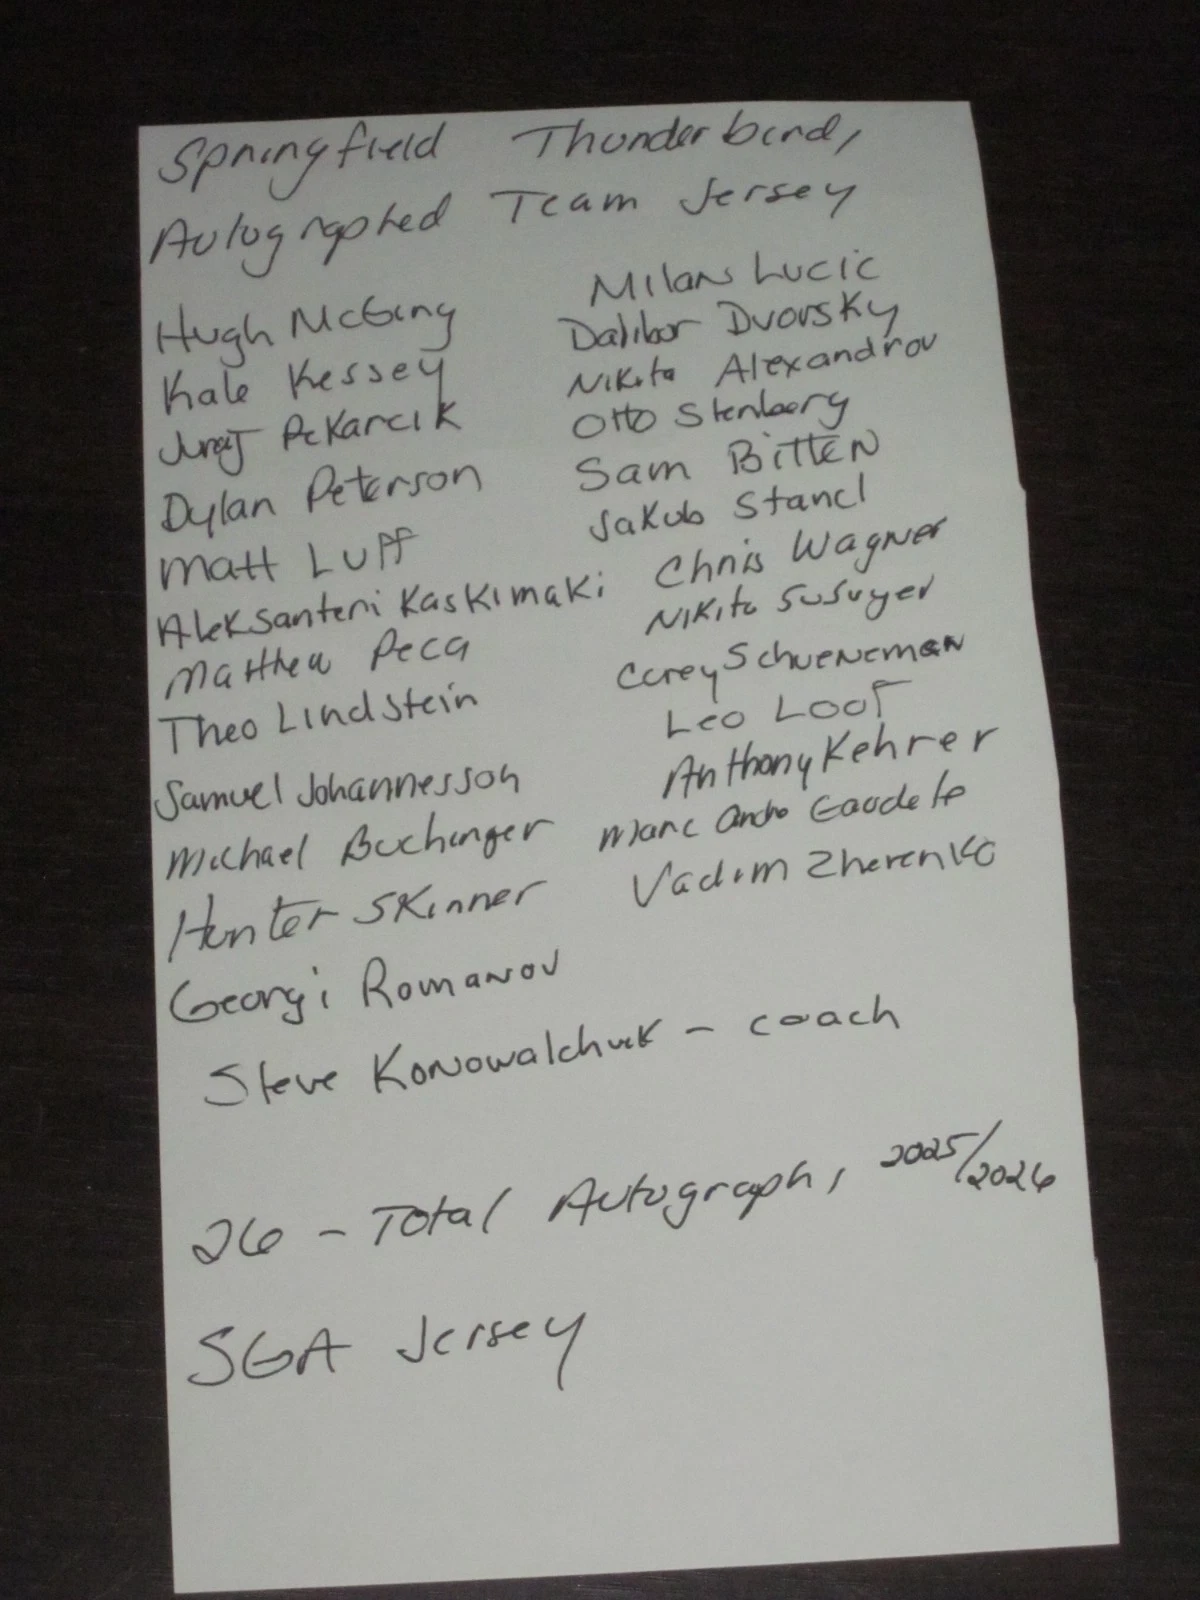 Springfield Thunderbirds
Autographed Team Jersey
Hugh McGing
Kale Kessey
Juraj Pekarcik
Dylan Peterson
Matt Luff
Aleksanteri Kaskimaki
Matthew Peca
Theo Lindstein
Samuel Johannesson
Michael Buchinger
Hunter Skinner
Georgi Romanov
Milan Lucic
Dalibor Dvorsky
Nikita Alexandrov
Otto Stenberg
Sam Bitten
Jakub Stancl
Chris Wagner
Nikita Susuyev
Corey Schueneman
Leo Loof
Anthony Kehrer
Marc Andre Gaudet
Vadim Zherenko
Steve Konowalchuk - coach
26 - Total Autographs 2025/2026
SGA Jersey